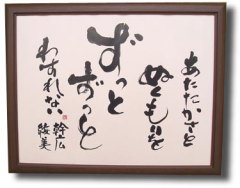 あたたかさと
ぬくもりを
ずっと
ずっと
わすれない
幹広
綾美